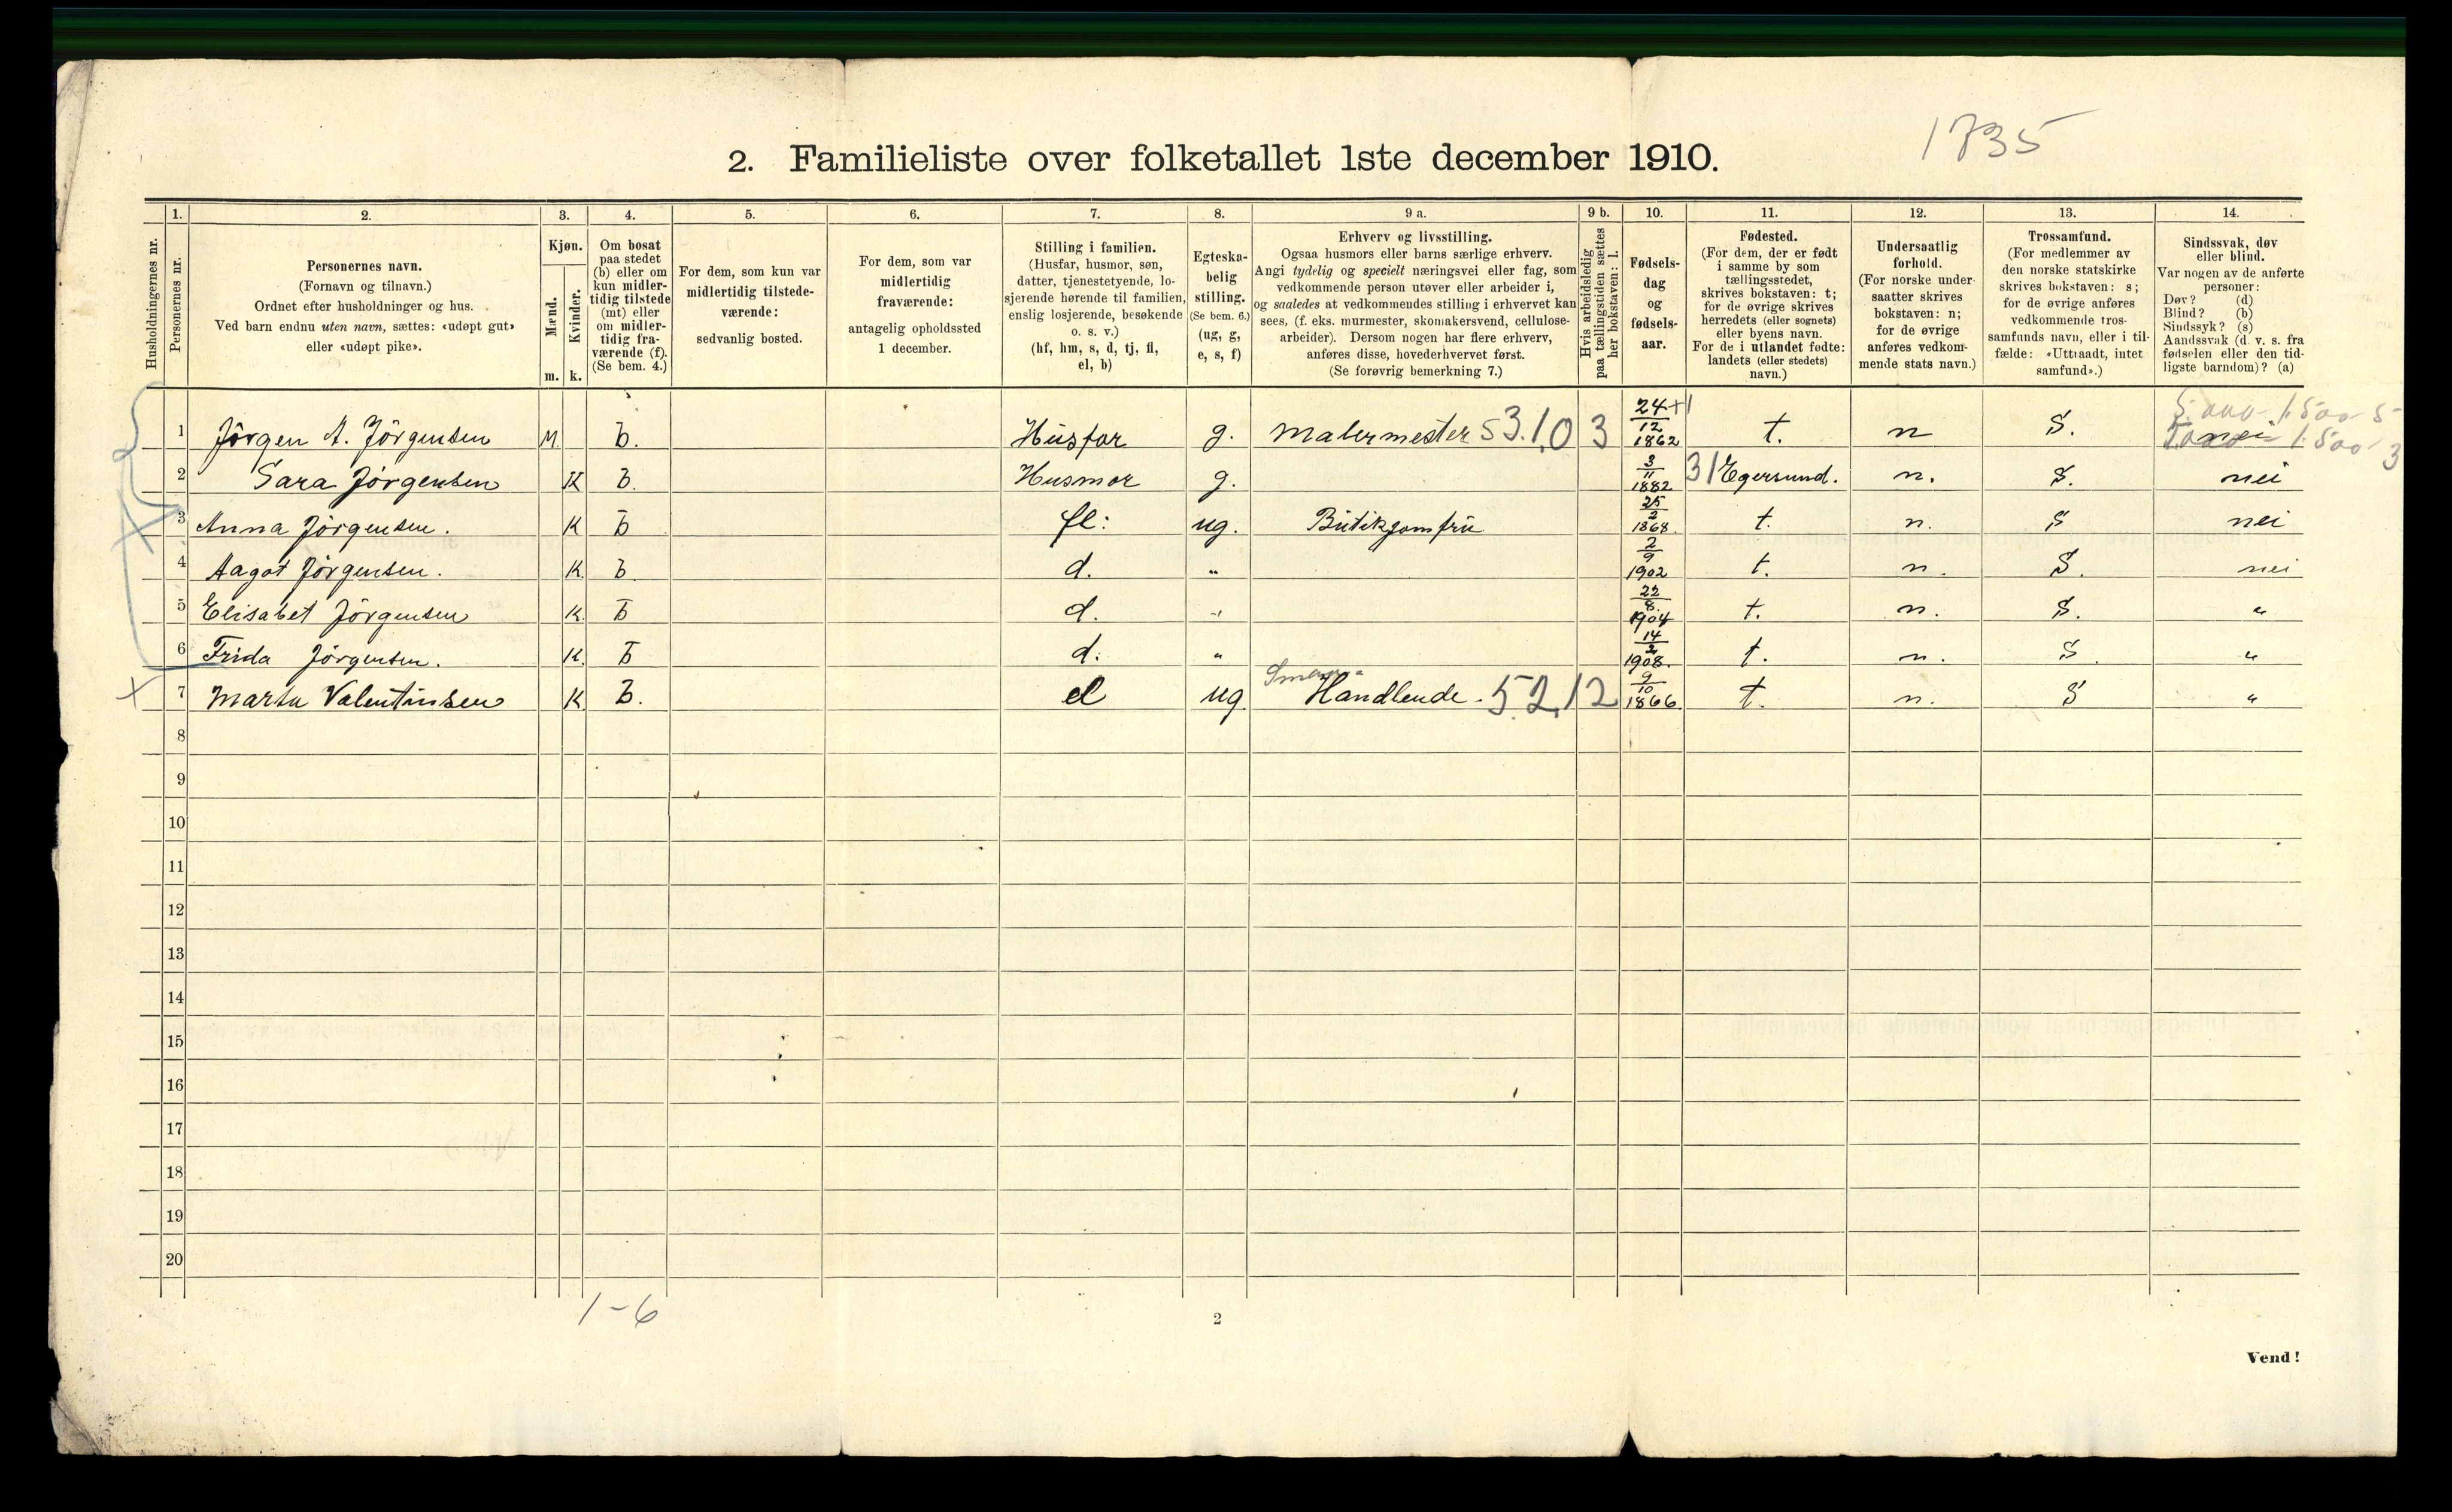 1735
2. Familieliste over folketallet 1ste december 1910.
Husholdningernes nr.
1.
Personernes nr.
2.
Personernes navn.
(Fornavn og tilnavn.)
Ordnet efter husholdninger og hus.
Ved barn endnu uten navn, sættes: «udøpt gut»
eller «udøpt pike».
3.
Kjøn.
Mænd.
m.
Kvinder.
k.
4.
Om bosat
paa stedet
(b) eller om
kun midler-
tidig tilstede
(mt) eller
om midler-
tidig fra-
værende (f).
(Se bem. 4.)
5.
For dem, som kun var
midlertidig tilstede-
værende:
sedvanlig bosted.
6.
For dem, som var
midlertidig
fraværende:
antagelig opholdssted
1 december.
7.
Stilling i familien.
(Husfar, husmor, søn,
datter, tjenestetyende, lo-
sjerende hørende til familien,
enslig losjerende, besøkende
o. s. v.)
(hf, hm, s, d, tj, fl,
el, b)
8.
Egteska-
belig
stilling.
(Se bem. 6.)
(ug, g,
e, s, f)
9 a.
Erhverv og livsstilling.
Ogsaa husmors eller barns særlige erhverv.
Angi tydelig og specielt næringsvei eller fag, som
vedkommende person utøver eller arbeider i,
og saaledes at vedkommendes stilling i erhvervet kan
sees, (f. eks. murmester, skomakersvend, cellulose-
arbeider). Dersom nogen har flere erhverv,
anføres disse, hovederhvervet først.
(Se forøvrig bemerkning 7.)
9 b.
Hvis arbeidsledig
paa tællingstiden sættes
her bokstaven: l.
10.
Fødsels-
dag
og
fødsels-
aar.
11.
Fødested.
(For dem, der er født
i samme by som
tællingsstedet,
skrives bokstaven: t;
for de øvrige skrives
herredets (eller sognets)
eller byens navn.
For de i utlandet fødte:
landets (eller stedets)
navn.)
12.
Undersaatlig
forhold.
(For norske under-
saatter skrives
bokstaven: n;
for de øvrige
anføres vedkom-
mende stats navn.)
13.
Trossamfund.
(For medlemmer av
den norske statskirke
skrives bokstaven: s;
for de øvrige anføres
vedkommende tros-
samfunds navn, eller i til-
fælde: «Uttraadt, intet
samfund».)
14.
Sindssvak, døv
eller blind.
Var nogen av de anførte
personer:
Døv? (d)
Blind? (b)
Sindssyk? (s)
Aandssvak (d. v. s. fra
fødselen eller den tid-
ligste barndom)? (a)
5.000 1.500 5
1 Jörgen A. Jörgensen M. b. Husfar g. Malermester 53.1,0 3 24/12 1862 +1 t. n S. nei 1.500 3
2 Sara Jörgensen K b. Husmor g. 3/11 1882 31 Egersund. n. S. nei
3 Anna Jörgensen. K b fl: ug. Butikjomfru 25/2 1868. t. n. S nei
4 Aagot Jörgensen. K. b. d. " 2/9 1902 t. n. S. nei
5 Elisabet Jörgensen K. b d. " 22/8. 1904 t. n. S. "
6 Frida Jörgensen. K. b d. " 14/2 1908. t. n. S. "
x 7 Marta Valentinsen K b. el ug Handlende. 5.2,1 2 9/10 1866. t. n. S "
8
9
10
11
12
13
14
15
16
17
18
19
20
1-6
2
Vend!